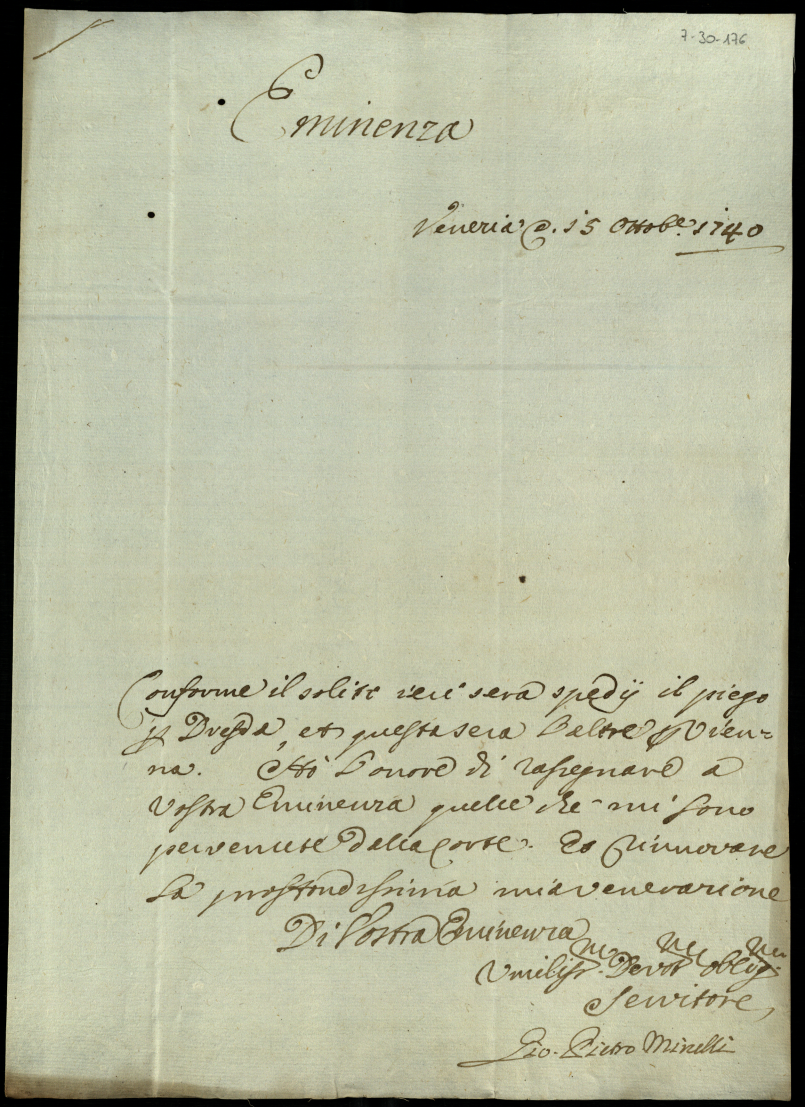 7-30-176
Eminenza
Venezia @. 15 Ottobe. 1740
Conforme il solito ieri sera spedij il piego
p Dresda, et questa sera l'altro p Vien=
na. Hò l'onore di rassegnare a
Vostra Eminenza quelle che mi sono
pervenute dalla Corte. Et rinnovare
la profondissima mia venerazione
Di Vostra Eminenza
Umiliss.mo Devot.mo obblig.mo
Servitore
Gio. Pietro Minelli